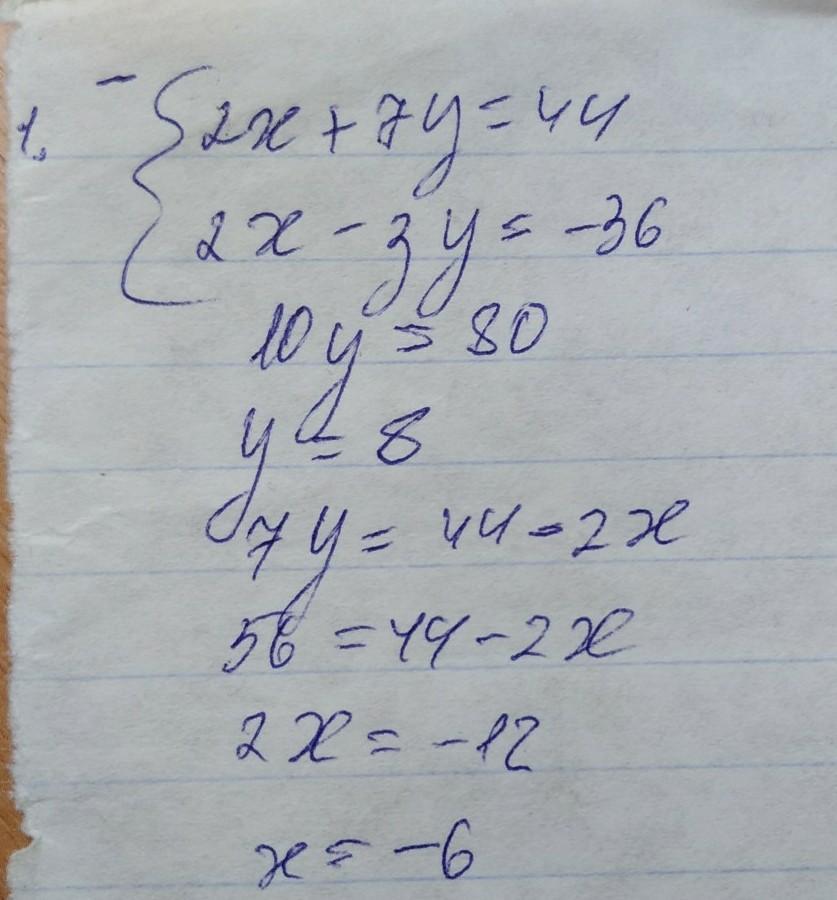 1. - { 2x + 7y = 44
2x - 3y = -36
10y = 80
y = 8
7y = 44 - 2x
56 = 44 - 2x
2x = -12
x = -6